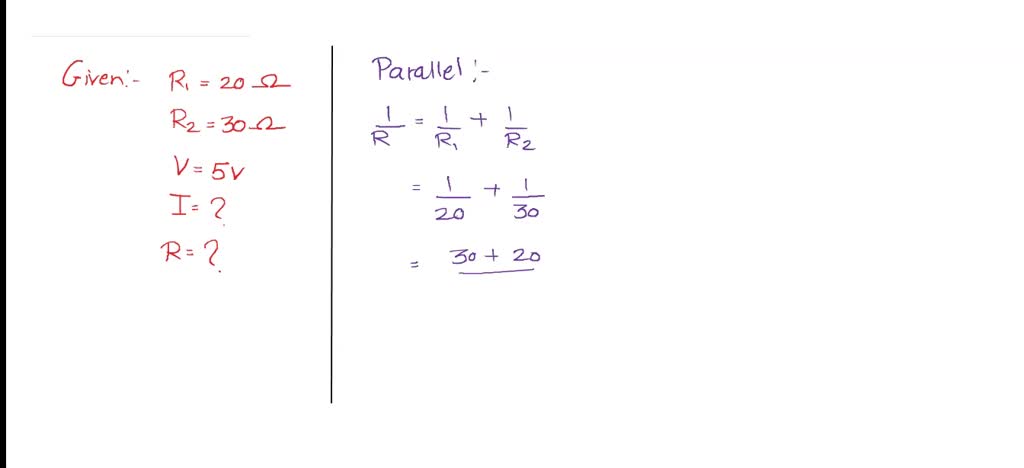 Given:- R₁ = 20 Ω
R₂ = 30 Ω
V = 5V
I = ?
R = ?
Parallel :-
1/R = 1/R₁ + 1/R₂
= 1/20 + 1/30
= 30 + 20